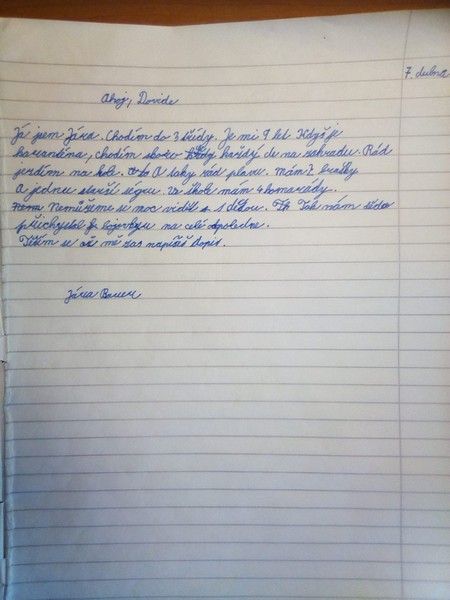 7. dubna
Ahoj, Davide
Já jsem Jára. Chodím do 3 třídy. Je mi 9 let. Když je
karanténa, chodím skoro každý de na zahradu. Rád
jezdím na kole. A taky rád plavu. Mám 2 brašky
a jednu starší ségru. Ve škole mám 4 kamarády.
Nemůžeme se moc vidět s dědou. Tak nám děda
přichystal hru na celé odpoledne.
Těším se až mě zas napíšeš dopis.
Jára Bauer